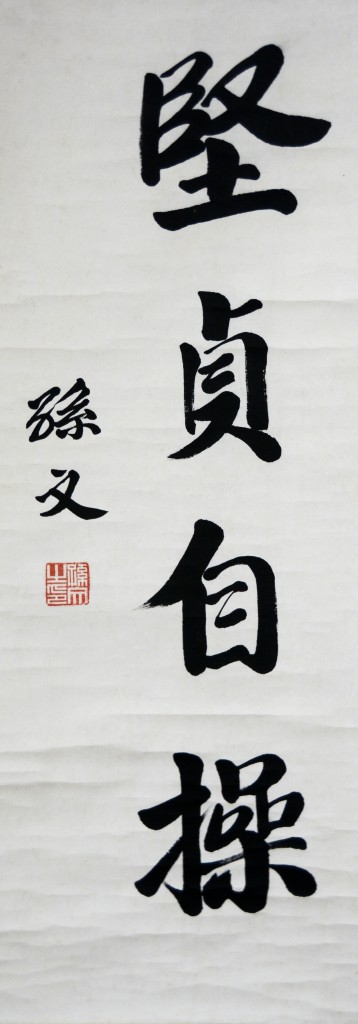 堅貞自操
孫文
孫文之印